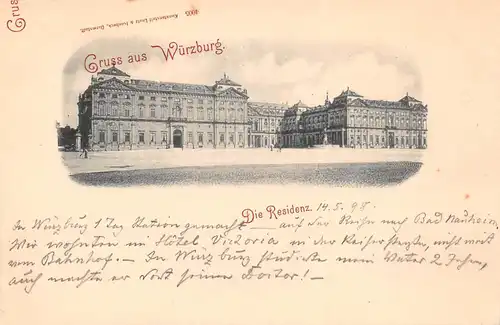 Gruss aus Würzburg.
Die Residenz. 14.5.98.
In Würzburg 1 Tag Station gemacht — auf der Reise nach Bad Nauheim.
Wir wohnten im Hôtel Victoria in der Kaiserstraße, nicht weit
vom Bahnhof. — In Würzburg studirte mein Vater 2 Jahre,
auch machte er dort seinen Doctor! —